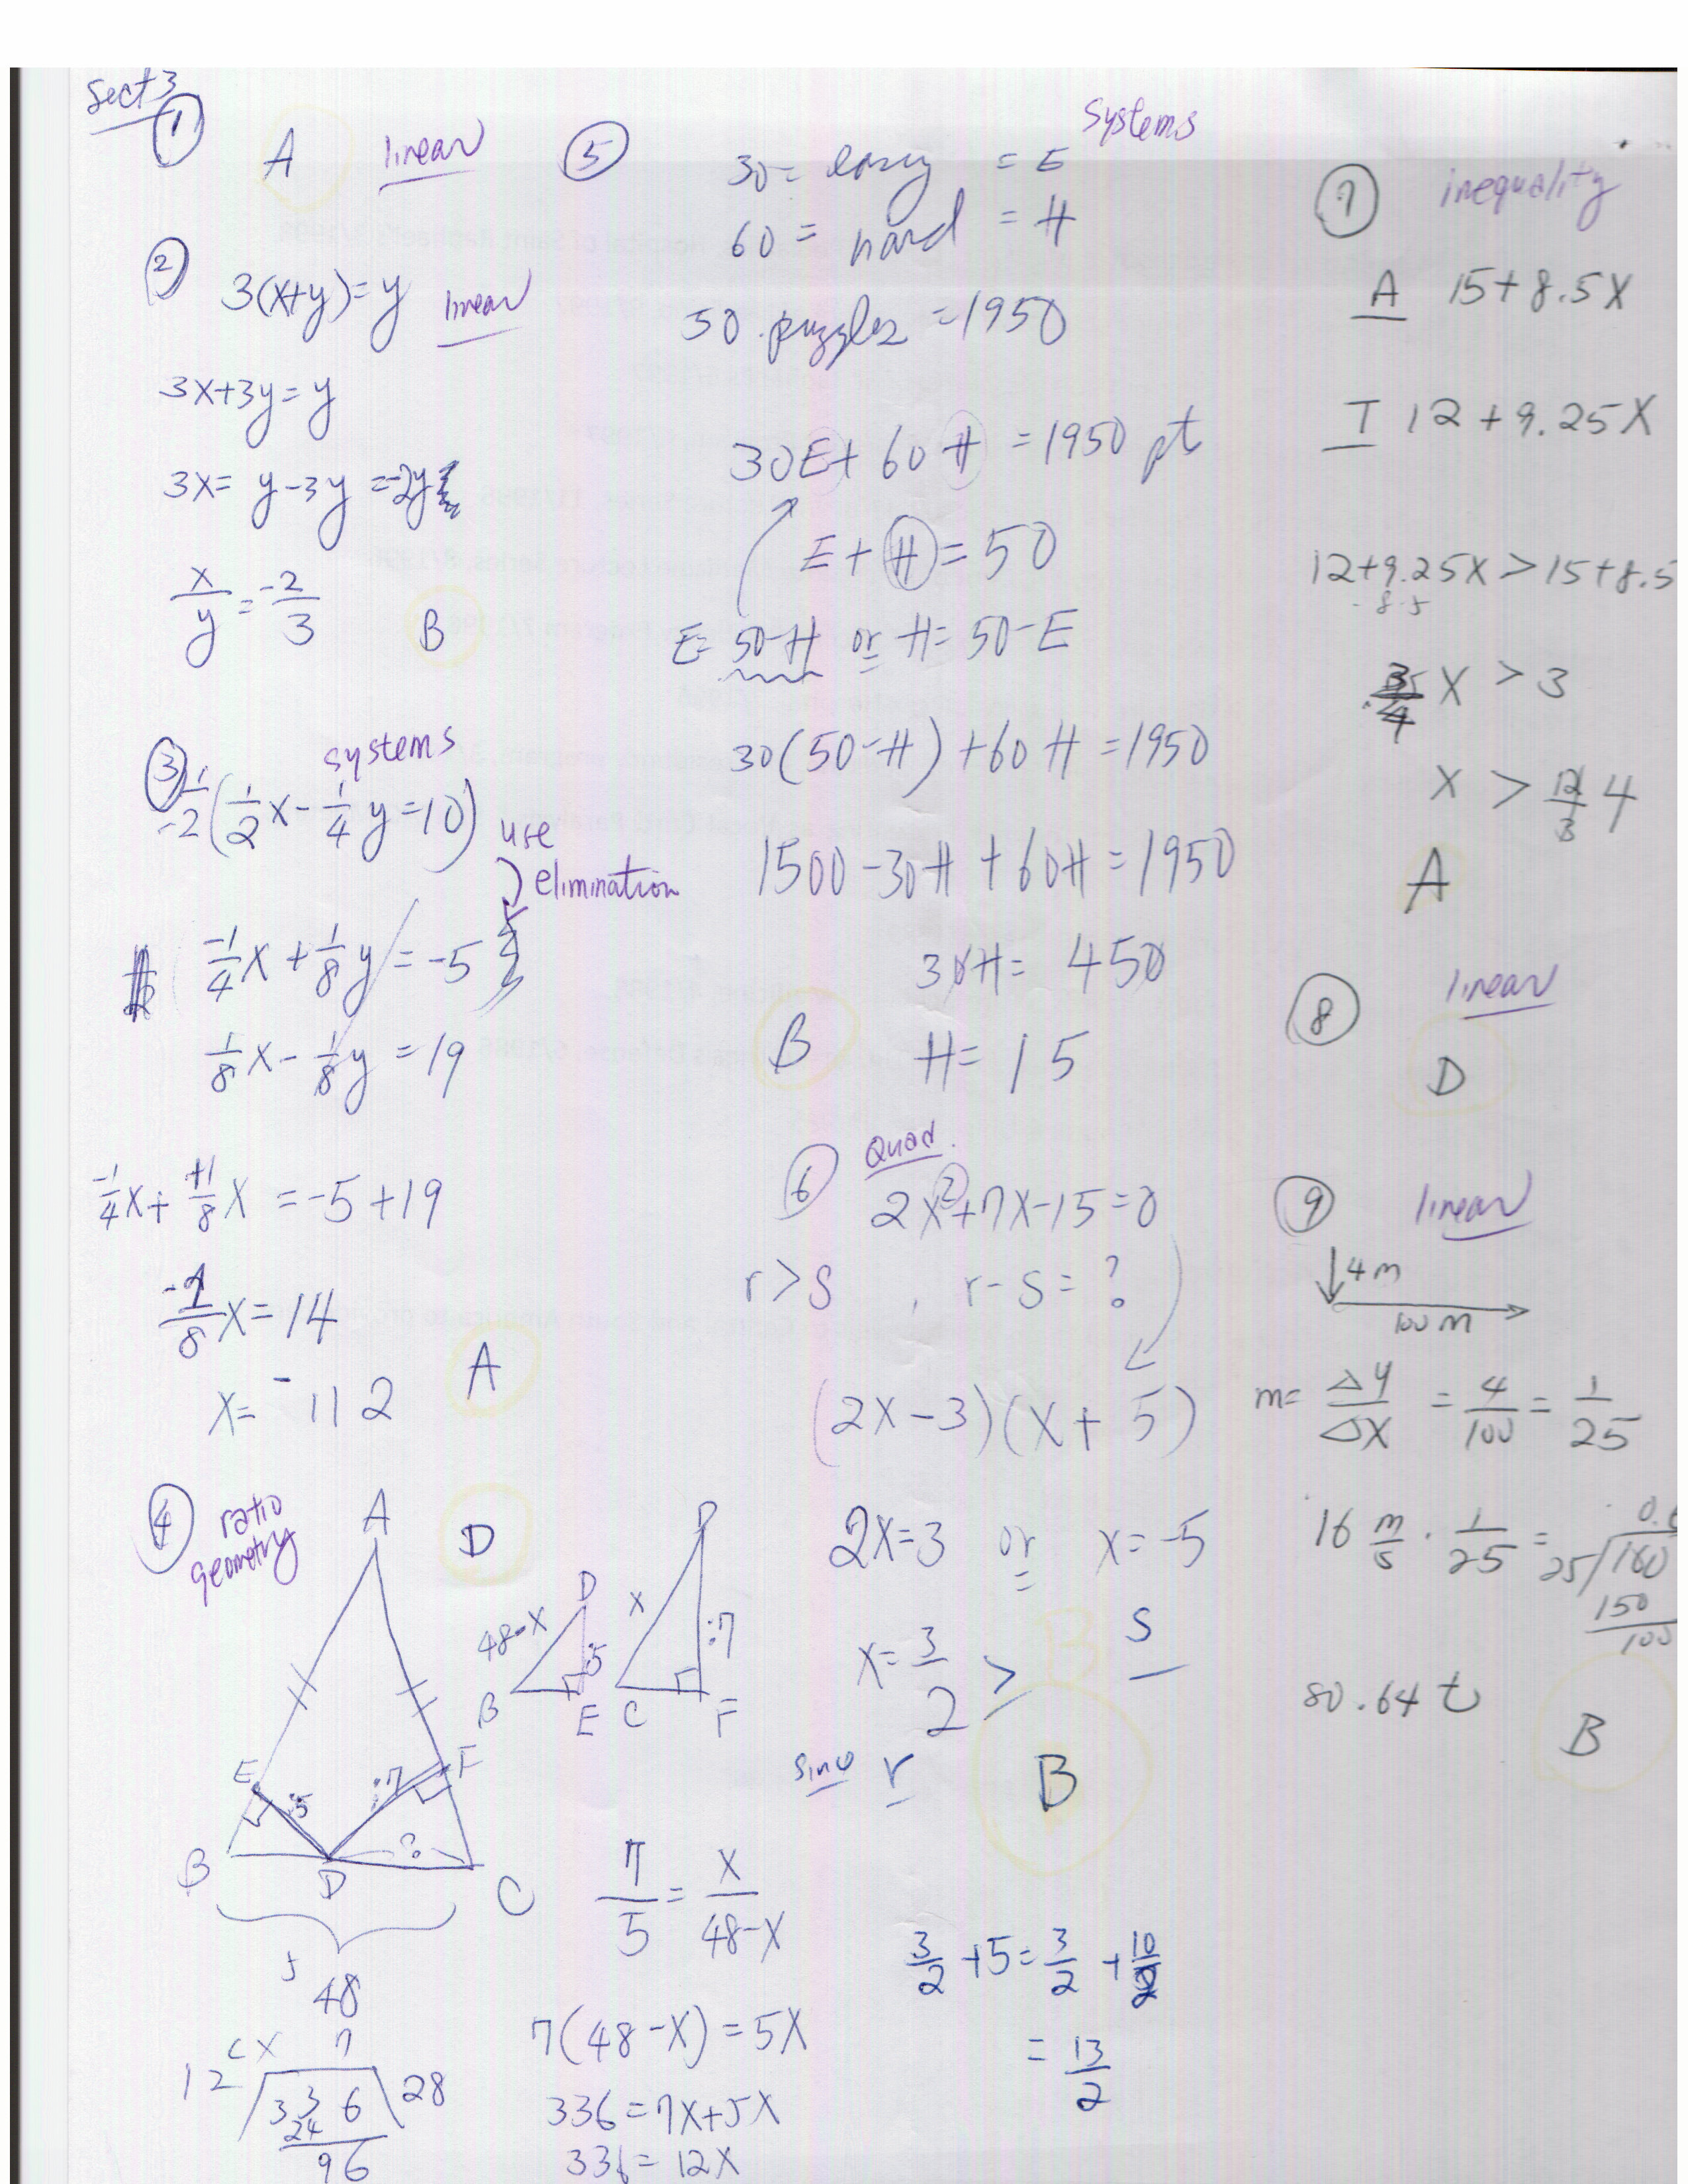 Sect 3
①
A linear
②
3(x+y)=y linear
3x+3y=y
3x= y-3y =-2y
x/y = -2/3 B
③ systems
1/-2 (1/2x - 1/4y =10)
use
elimination
-1/4x + 1/8y = -5
1/8x - 1/8y = 19
-1/4x + +1/8x = -5+19
-1/8x = 14
x= -112 A
④ ratio
geometry
A D
D
48-x :5
B E
x :7
C F
E :5 :7 F
B D ? C
48
7/5 = x/48-x
7(48-x)=5x
336=7x+5x
336=12x
12 336 28
24
96
⑤ Systems
30= easy = E
60 = hard = H
50 puzzles =1950
30E+60H =1950 pt
E+H=50
E= 50-H or H=50-E
30(50-H)+60H=1950
1500-30H+60H=1950
30H= 450
B H=15
⑥ Quad.
2x²+7x-15=0
r>s , r-s=?
(2x-3)(x+5)
2x=3 or x=-5
x=3/2 > s
r B
3/2 +5= 3/2 + 10/2
= 13/2
⑦ inequality
A 15+8.5x
T 12+9.25x
12+9.25x>15+8.5
-8.5
3/4 x > 3
x > 12/3 4
A
⑧ linear
D
⑨ linear
4m
100m
m= Δy/Δx = 4/100 = 1/25
16 m/s · 1/25 = 25 160
150
100
80.64t B